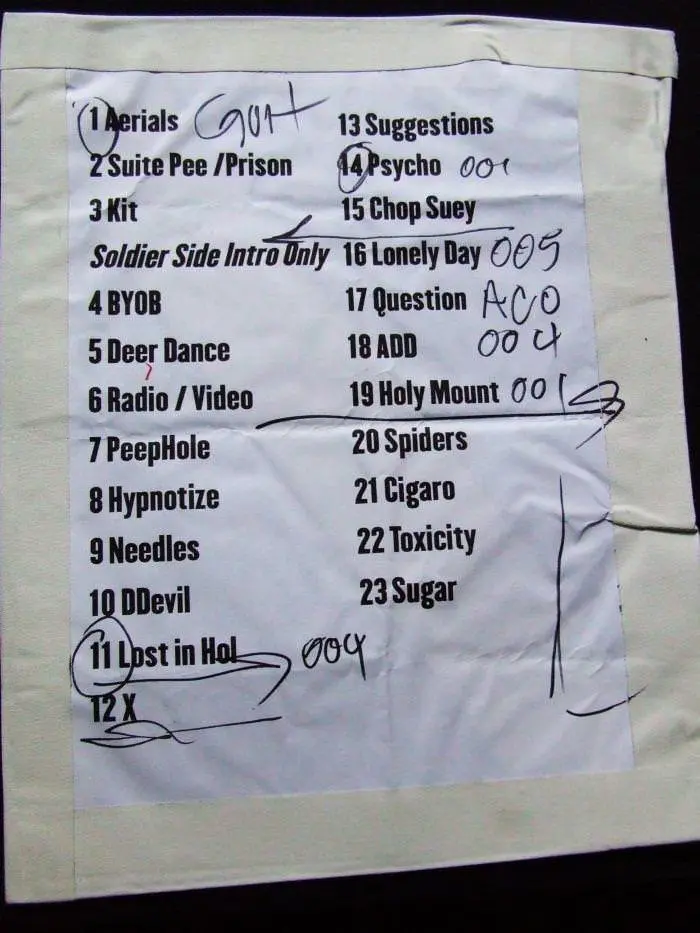 1 Aerials
2 Suite Pee /Prison
3 Kit
Soldier Side Intro Only
4 BYOB
5 Deer Dance
6 Radio / Video
7 PeepHole
8 Hypnotize
9 Needles
10 DDevil
11 Lost in Hol 004
12 X
13 Suggestions
14 Psycho 001
15 Chop Suey
16 Lonely Day 005
17 Question ACO
18 ADD 004
19 Holy Mount 001
20 Spiders
21 Cigaro
22 Toxicity
23 Sugar